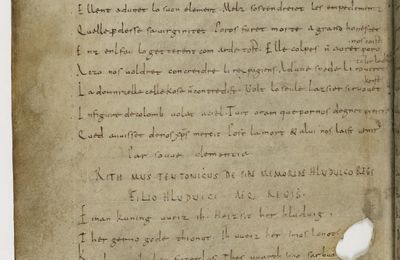 Ellent adunet lo suon element Melz sostendreiet les empedementz
Quelle perdesse sa virginitet Poros furet morte a grand honestet
Enz enl fou lo getterent com arde tost Elle colpes nō auret poro nos coist
Aczo nos voldret concreidre li rex pagiens Ad une spede li roveret tolir lo chief
La domnizelle celle kose nō contredist Volt lo seule lazsier si ruovet Krist
In figure de colomb volat a ciel Tuit oram que por nos degnet preier
Qued auuisset de nos Xps mercit Post la mort & a lui nos laist venir
Par souue clementia
RITHMUS TEUTONICUS DE PIAE MEMORIAE HLUDUICO REGE
FILIO HLUDUICI AEQ REGIS
Einan kuning uueiz ih Heizsit her hluduig
Ther gerno gode thionot Ih uueiz her imos lonot
faterlos Thes uuarth imo sar buoz